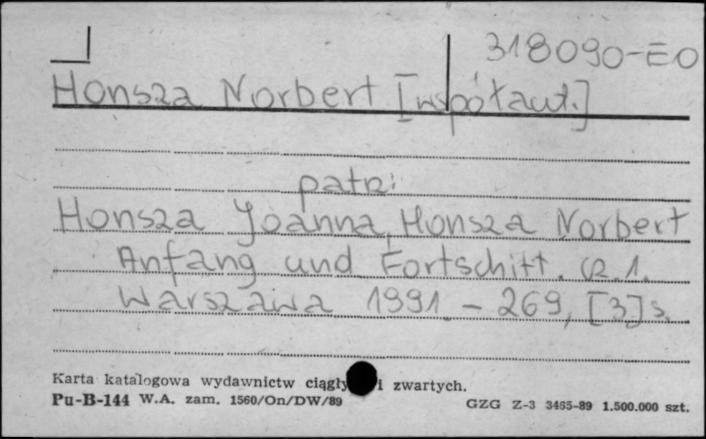 318090-EO
Honsza Norbert [współaut.]
patrz:
Honsza Joanna, Honsza Norbert
Anfang und Fortschitt. Cz. 1.
Warszawa 1991. - 269, [3] s.
Karta katalogowa wydawnictw ciągły i zwartych.
Pu-B-144 W.A. zam. 1560/On/DW/89
GZG Z-3 3465-89 1.500.000 szt.